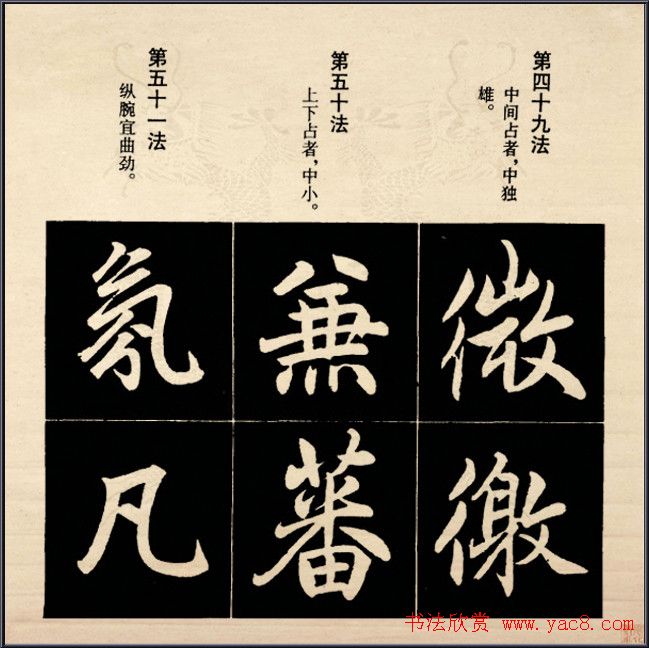 第四十九法
中间占者，中独
雄。
第五十法
上下占者，中小。
第五十一法
纵腕宜曲劲。
微
兼
蕃
氛
凡
书法欣赏 www.yac8.com